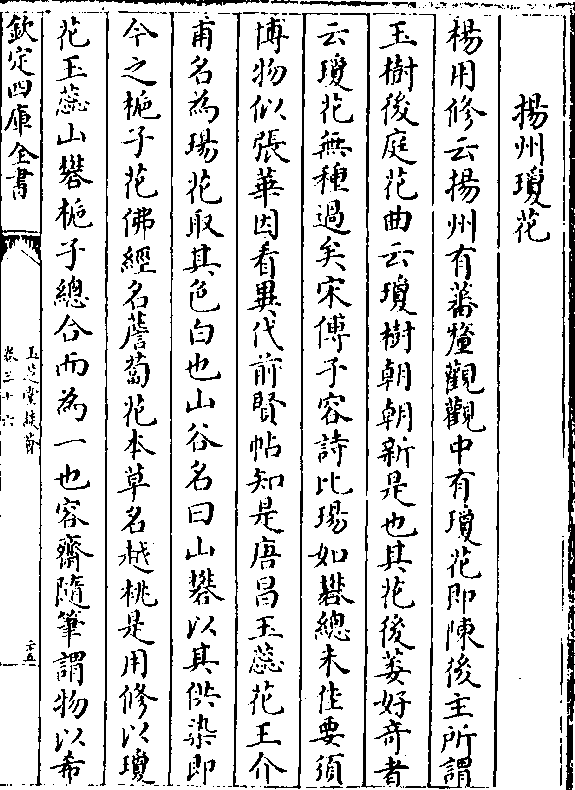 揚州瓊花
楊用修云揚州有蕃釐觀觀中有瓊花即陳後主所謂
玉樹後庭花曲云瓊樹朝朝新是也其花後萎好奇者
云瓊花無種過矣宋傅子容詩比瑒如礬總未佳要須
博物似張華因看異代前賢帖知是唐昌玉蕊花王介
甫名為瑒花取其色白也山谷名曰山礬以其供染即
今之梔子花佛經名薝蔔花本草名越桃是用修以瓊
花玉蕊山礬梔子總合而為一也容齋隨筆謂物以希
欽定四庫全書
玉芝堂談薈
卷三十六
二十五